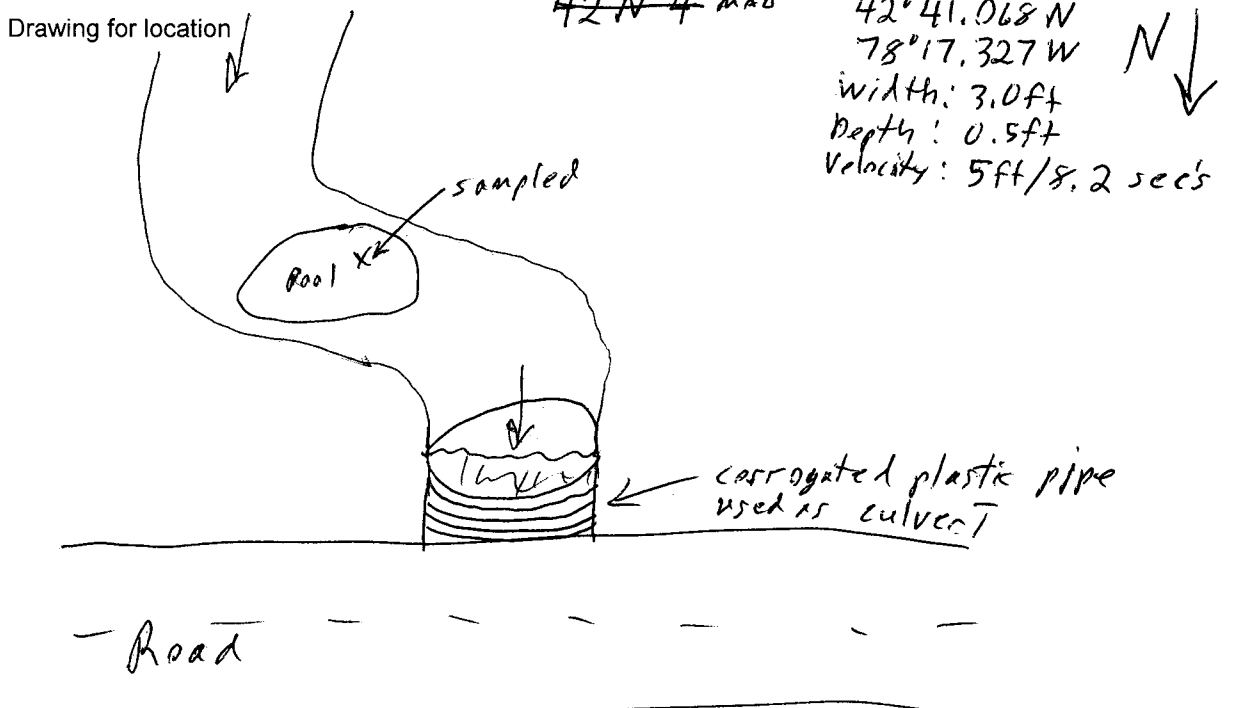 Drawing for location
42°41.068 N
78°17.327 W
N
Width: 3.0ft
Depth: 0.5ft
Velocity: 5ft/8.2 sec's
sampled
Pool X
corrogated plastic pipe
used as culverT
Road